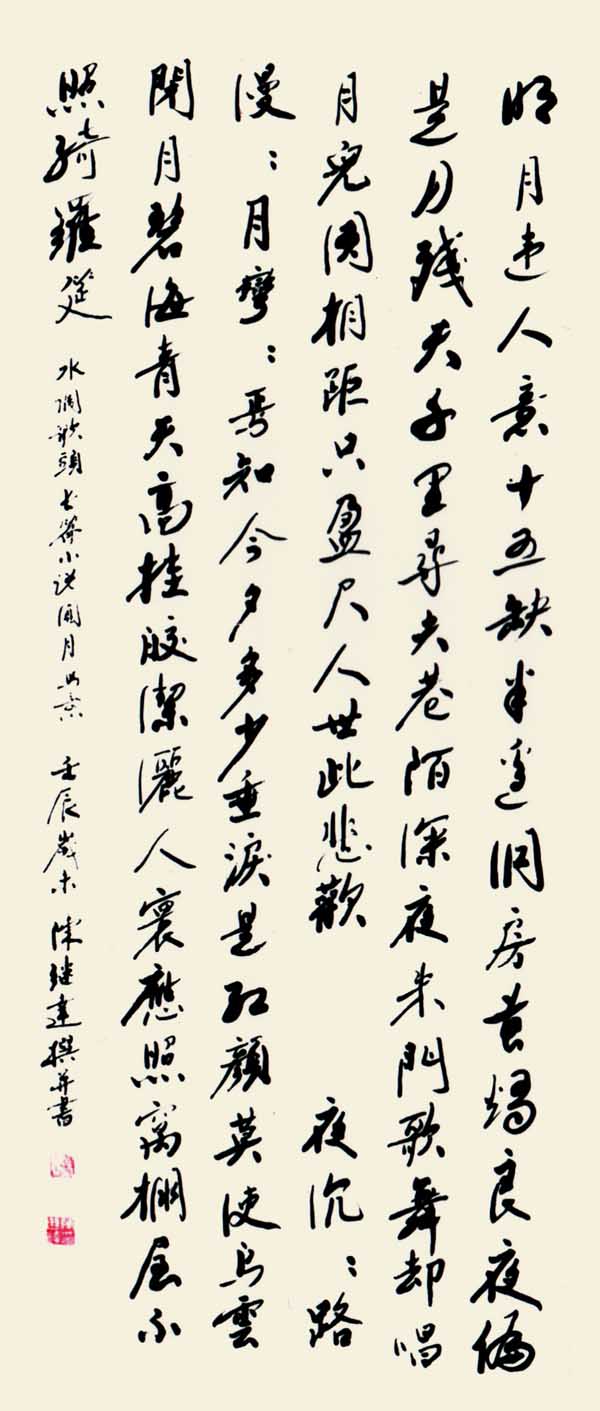 明月违人意十五缺半邊洞房花燭良夜偏
是月殘天千里尋夫巷陌深夜朱門歌舞却唱
月兒圓相距只盈尺人世此悲歡 夜沉：路
漫：月彎：焉知今夕多少垂淚是紅顏莫使烏雲
閉月碧海青天高挂皎潔灑人寰應照窩棚屋不
照綺羅筵 水調歌頭 長篇小説圓月 壬辰歲末 陳继達撰并書